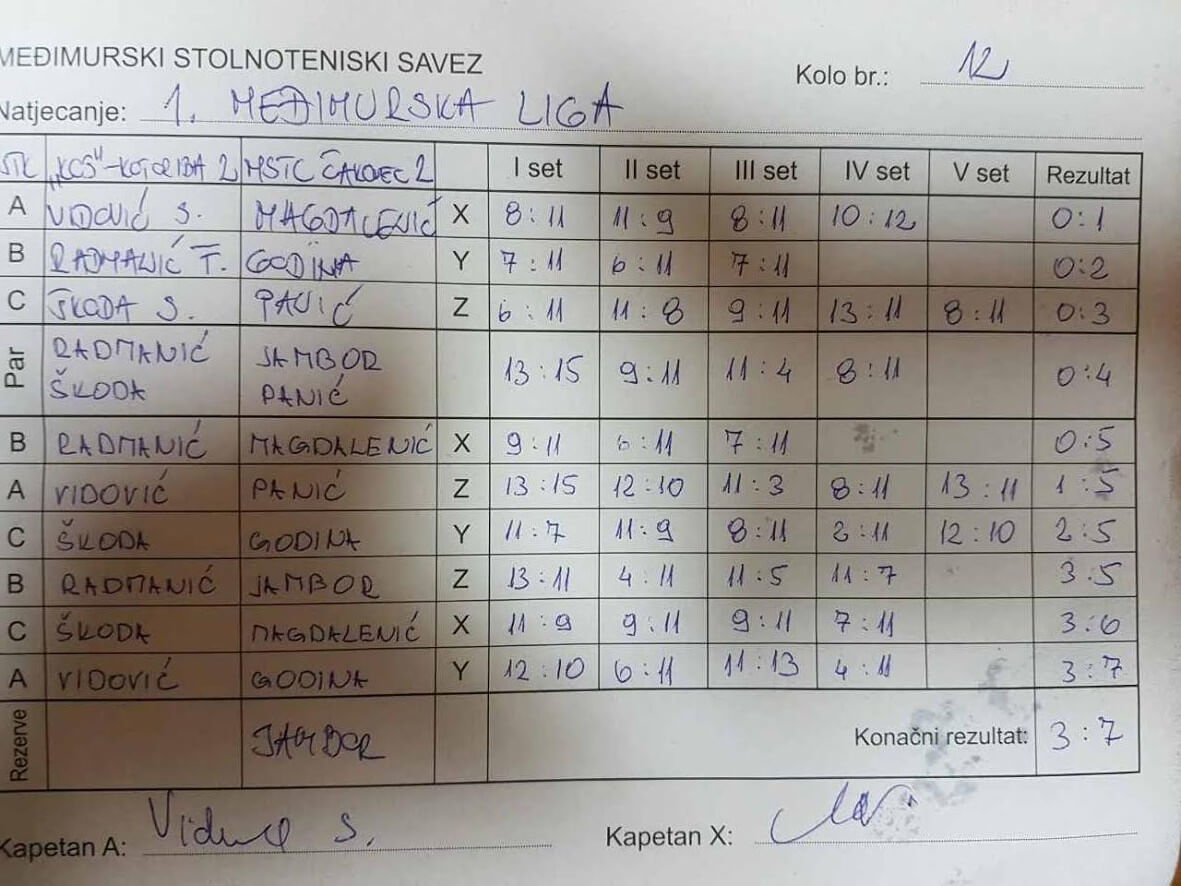 MEĐIMURSKI STOLNOTENISKI SAVEZ
Kolo br.: 12
Natjecanje: 1. MEĐIMURSKA LIGA
STK „KOŠ"-KOTORIBA 2 MSTC ČAKOVEC 2 I set II set III set IV set V set Rezultat
A VIDOVIĆ S. MAGDALENIĆ X 8:11 11:9 8:11 10:12 0:1
B RADMANIĆ T. GODINA Y 7:11 6:11 7:11 0:2
C ŠKODA S. PANIĆ Z 6:11 11:8 9:11 13:11 8:11 0:3
Par RADMANIĆ JAMBOR 13:15 9:11 11:4 8:11 0:4
ŠKODA PANIĆ
B RADMANIĆ MAGDALENIĆ X 9:11 6:11 7:11 0:5
A VIDOVIĆ PANIĆ Z 13:15 12:10 11:3 8:11 13:11 1:5
C ŠKODA GODINA Y 11:7 11:9 8:11 2:11 12:10 2:5
B RADMANIĆ JAMBOR Z 13:11 4:11 11:5 11:7 3:5
C ŠKODA MAGDALENIĆ X 11:9 9:11 9:11 7:11 3:6
A VIDOVIĆ GODINA Y 12:10 6:11 11:13 4:11 3:7
Rezerve JAMBOR Konačni rezultat: 3:7
Kapetan A: S. Kapetan X: